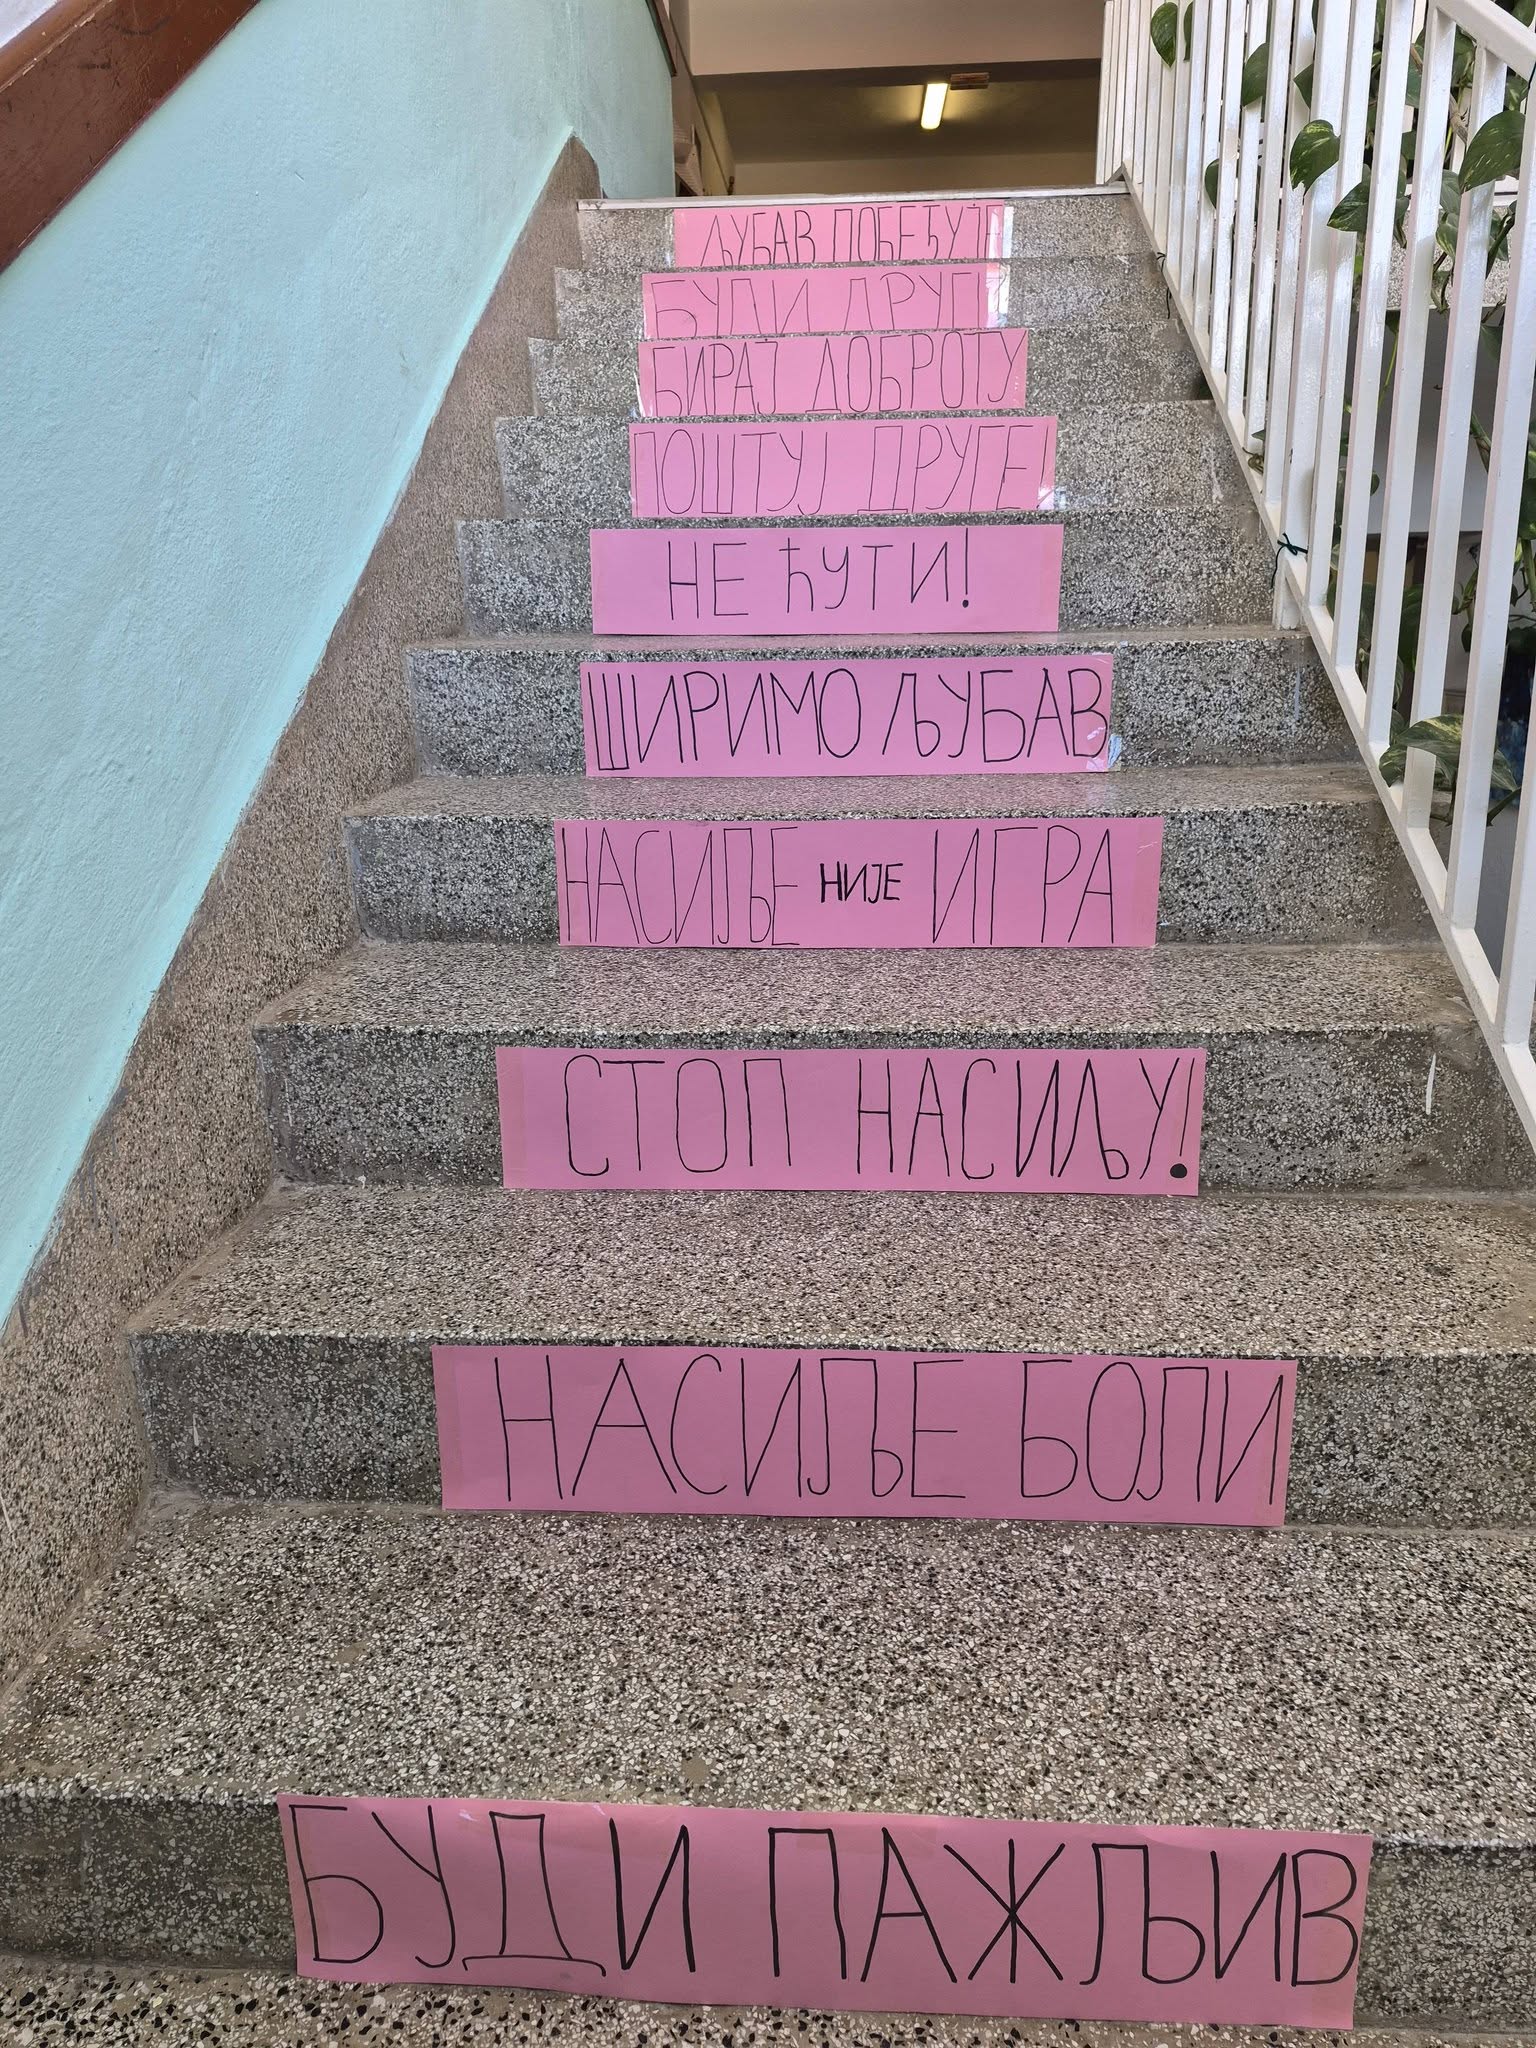 ЉУБАВ ПОБЕЂУЈЕ
БУДИ ДРУГ!
БИРАЈ ДОБРОТУ
ПОШТУЈ ДРУГЕ!
НЕ ЋУТИ!
ШИРИМО ЉУБАВ
НАСИЉЕ НИЈЕ ИГРА
СТОП НАСИЉУ!
НАСИЉЕ БОЛИ
БУДИ ПАЖЉИВ